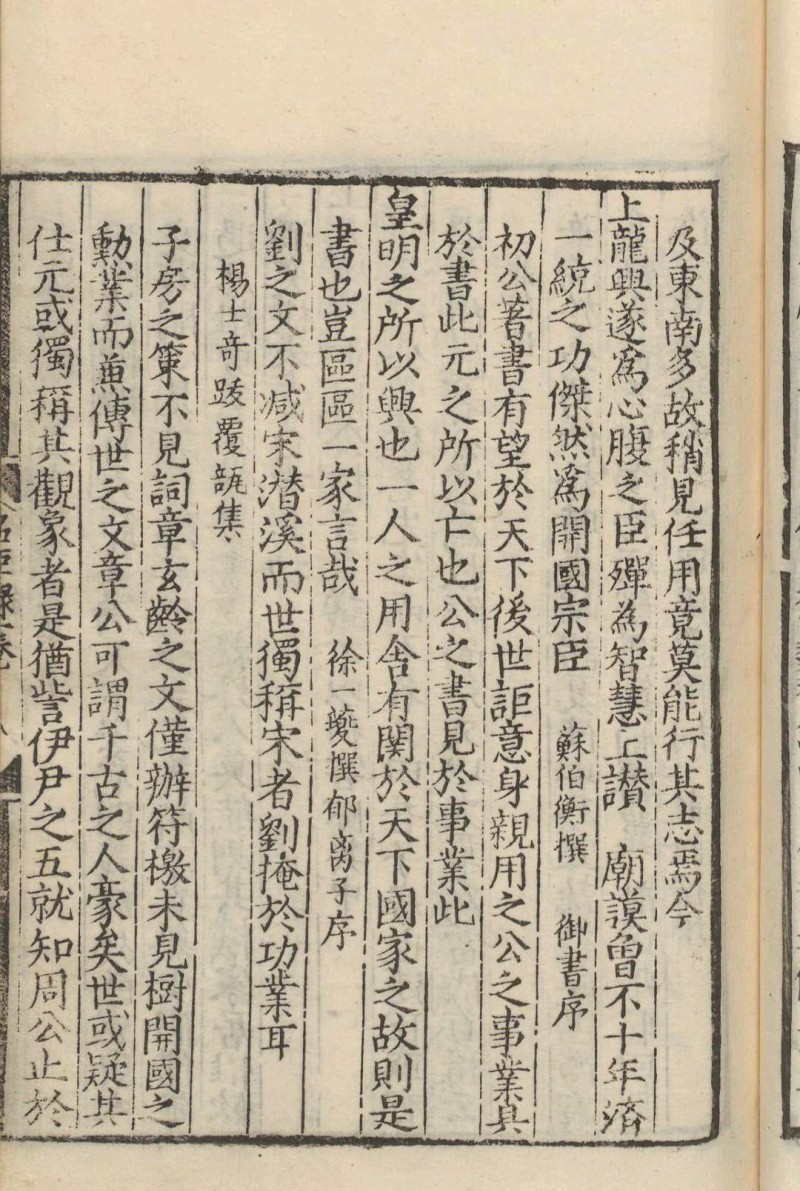 及東南多故稍見任用竟莫能行其志焉今
上龍興遂爲心腹之臣殫為智慧上讃 廟謨曾不十年濟
一統之功傑然爲開國宗臣 蘇伯衡撰 御書序
初公著書有望於天下後世詎意身親用之公之事業具
於書此元之所以亡也公之書見於事業此
皇明之所以興也一人之用舍有関於天下國家之故則是
書也豈區區一家言哉 徐一夔撰郁离子序
劉之文不减宋潛溪而世獨稱宋者劉掩於功業耳
楊士奇跋覆瓿集
子房之策不見詞章玄齡之文僅辦符檄未見樹開國之
勲業而兼傳世之文章公可謂千古之人豪矣世或疑其
仕元或獨稱其觀象者是猶訾伊尹之五就知周公止於